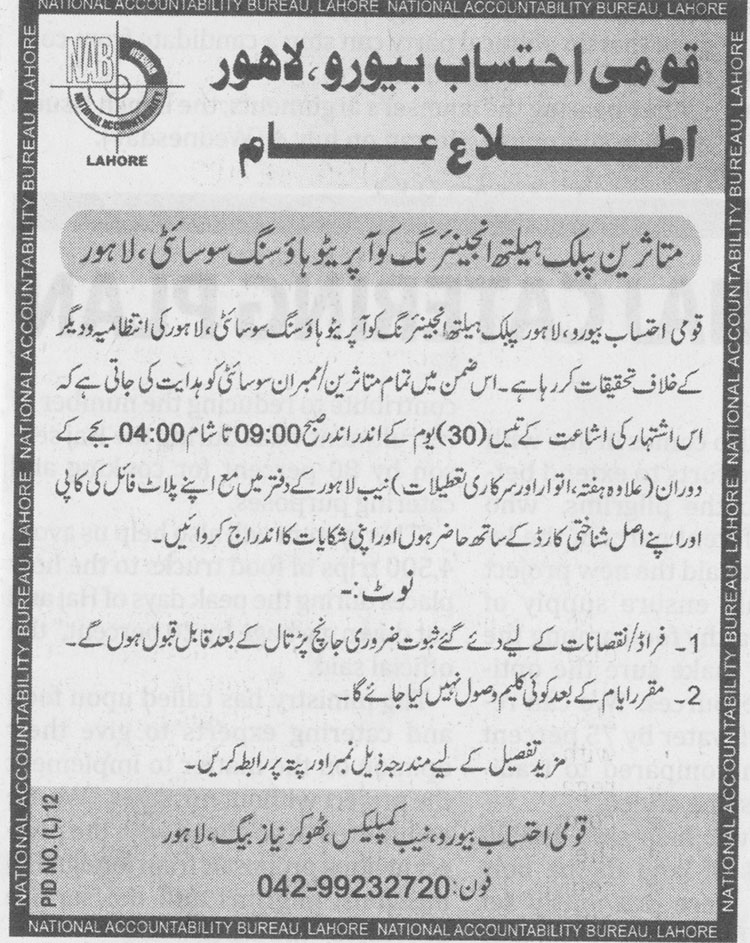 NATIONAL ACCOUNTABILITY BUREAU, LAHORE NATIONAL ACCOUNTABILITY BUREAU, LAHORE
NAB
LAHORE
قومی احتساب بیورو، لاہور
اطلاع عام
متاثرین پبلک ہیلتھ انجینئرنگ کوآپریٹو ہاؤسنگ سوسائٹی، لاہور
قومی احتساب بیورو، لاہور پبلک ہیلتھ انجینئرنگ کوآپریٹو ہاؤسنگ سوسائٹی، لاہور کی انتظامیہ و دیگر
کے خلاف تحقیقات کر رہا ہے۔ اس ضمن میں تمام متاثرین/ممبران سوسائٹی کو ہدایت کی جاتی ہے کہ
اس اشتہار کی اشاعت کے تیس (30) یوم کے اندر اندر صبح 09:00 تا شام 04:00 بجے کے
دوران (علاوہ ہفتہ، اتوار اور سرکاری تعطیلات) نیب لاہور کے دفتر میں مع اپنے پلاٹ فائل کی کاپی
اور اپنے اصل شناختی کارڈ کے ساتھ حاضر ہوں اور اپنی شکایات کا اندراج کروائیں۔
نوٹ:-
1- فراڈ/نقصانات کے لیے دئے گئے ثبوت ضروری جانچ پڑتال کے بعد قابل قبول ہوں گے۔
2- مقرر ایام کے بعد کوئی کلیم وصول نہیں کیا جائے گا۔
مزید تفصیل کے لیے مندرجہ ذیل نمبر اور پتہ پر رابطہ کریں۔
قومی احتساب بیورو، نیب کمپلیکس، ٹھوکر نیاز بیگ، لاہور
فون: 042-99232720
PID NO. (L) 12
NATIONAL ACCOUNTABILITY BUREAU, LAHORE NATIONAL ACCOUNTABILITY BUREAU, LAHORE
NATIONAL ACCOUNTABILITY BUREAU, LAHORE NATIONAL ACCOUNTABILITY BUREAU, LAHORE
NATIONAL ACCOUNTABILITY BUREAU, LAHORE NATIONAL ACCOUNTABILITY BUREAU, LAHORE